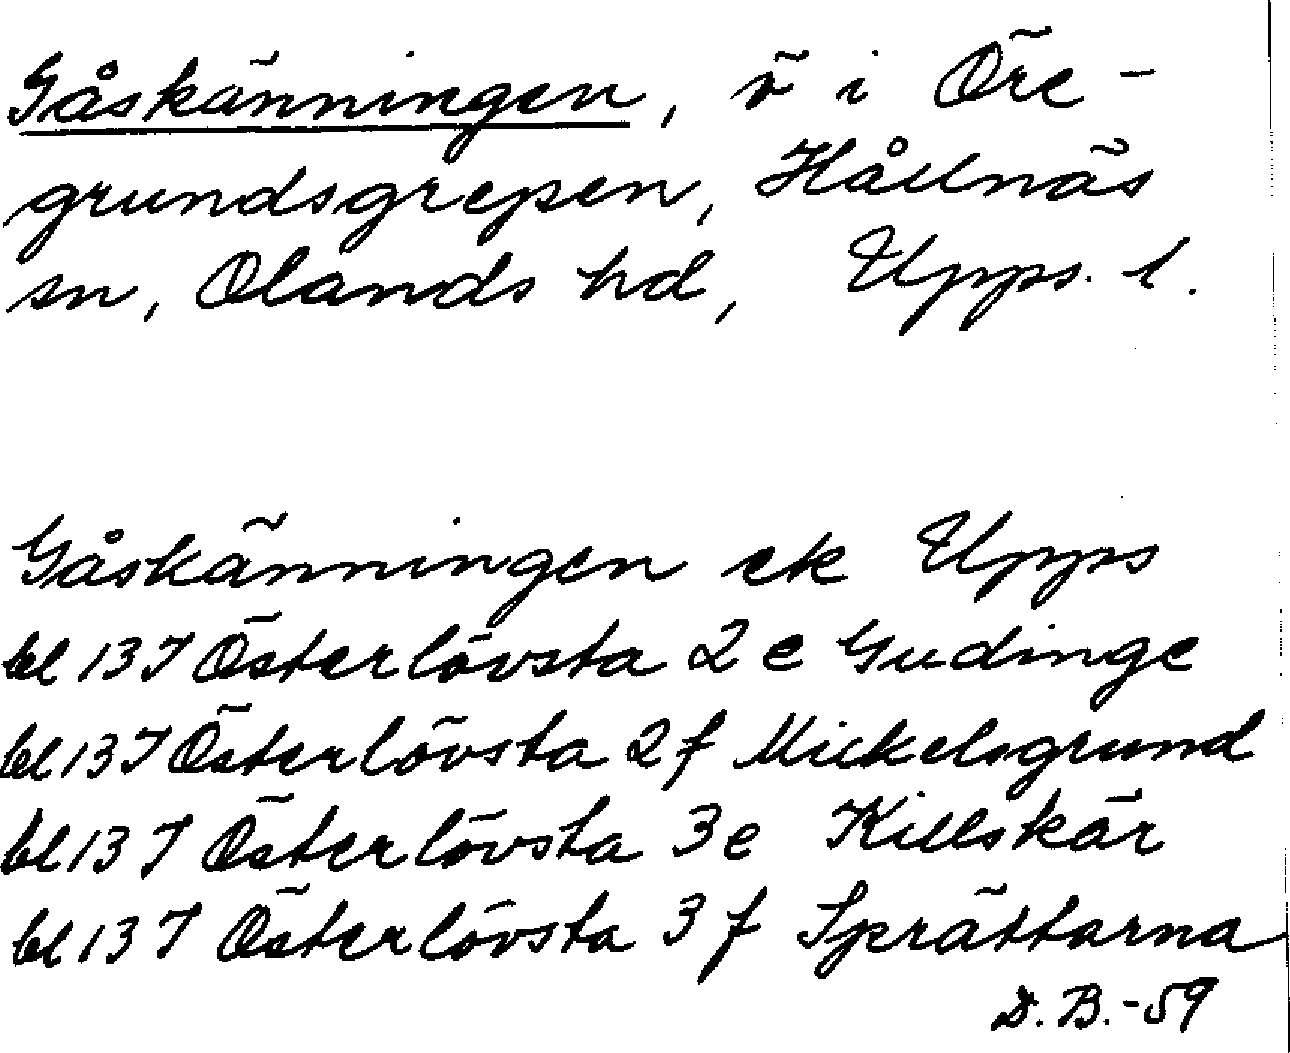 Gåskänningen, ö i Öre-
grundsgrepen, Hållnäs
sn, Olands hd, Upps. l.
Gåskänningen ek Upps
bl 13 I Österlövsta 2 e Gudinge
bl 13 I Österlövsta 2 f Mickelsgrund
bl 13 I Österlövsta 3 e Killskär
bl 13 I Österlövsta 3 f Sprättarna
D.B.-59